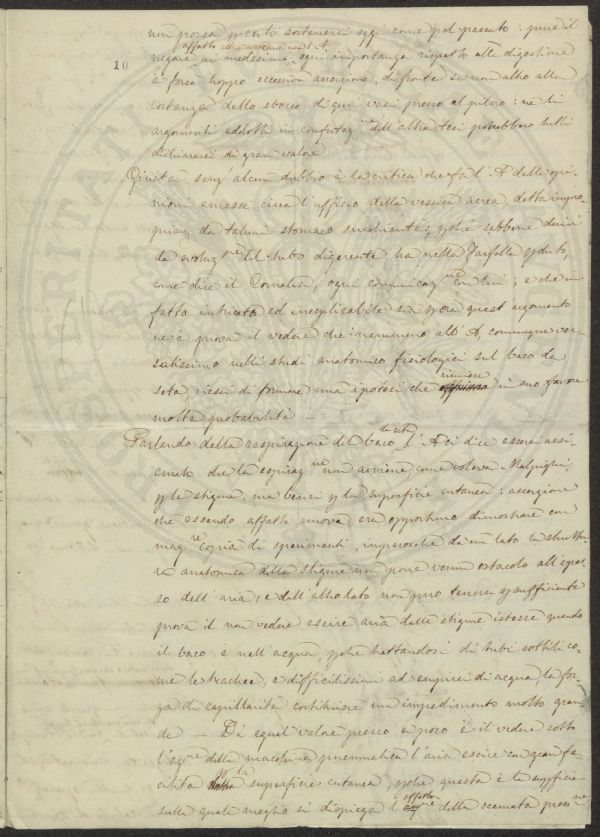 non possa punto sostenersi oggi come pel passato: pure il
affatto come opinione nell'A.
10
negare ai medesimi ogni importanza rispetto alla digestione
è forse troppo eccessiva asserzione, di fronte se non altro alla
costanza dello sbocco di quei vasi presso al piloro: nè gli
argomenti addotti in confutaz.ne dell'altra tesi potrebbero tutti
dichiararsi di gran valore.
Giusta senz'alcun dubbio è la critica che fa l'A delle opi-
nioni emesse circa l'ufficio della vescica aerea, detta impro-
priam. da taluni stomaco succhiante; pchè sebbene derivi
da evoluz.ne del tubo digerente ha nella Farfalla pduto,
come dice il Cornalia, ogni comunicaz.ne con lui; e che in
fatto intricato ed inesplicabile sia pora quest'argomento
ne è prova il vedere che nemmeno all'A, comunque ver-
satissimo nelli studi anatomico fisiologici sul baco da
seta, riescì di formare una ipotesi che riunisse in suo favore
molte probabilità —
Parlando della respirazione del baco da seta l'A ci dice essersi assi-
curato che la espiraz.ne non avviene come voleva Malpighi,
p le stigme, ma bensì p la superficie cutanea: asserzione
che essendo affatto nuova era opportuno dimostrare con
mag.re copia di sperimenti, imperocchè da un lato la struttu-
ra anatomica delle stigme non pone verun ostacolo all'egres-
so dell'aria, e dall'altro lato non può tenersi p sufficiente
prova il non vedere escire aria dalle stigme istesse quando
il baco è nell'acqua, pchè trattandosi di tubi sottili co-
me le trachee, e difficilissimi ad empirsi di acqua, la for-
za di capillarità costituisce un impedimento molto gran-
de — Di egual valore presso a poco è il vedere sotto
l'az.ne della macchina pneumatica l'aria escire con gran fa-
cilità p la superficie cutanea, pchè questa è la supficie
sulla quale meglio si dispiega l'effetto della scemata press.ne